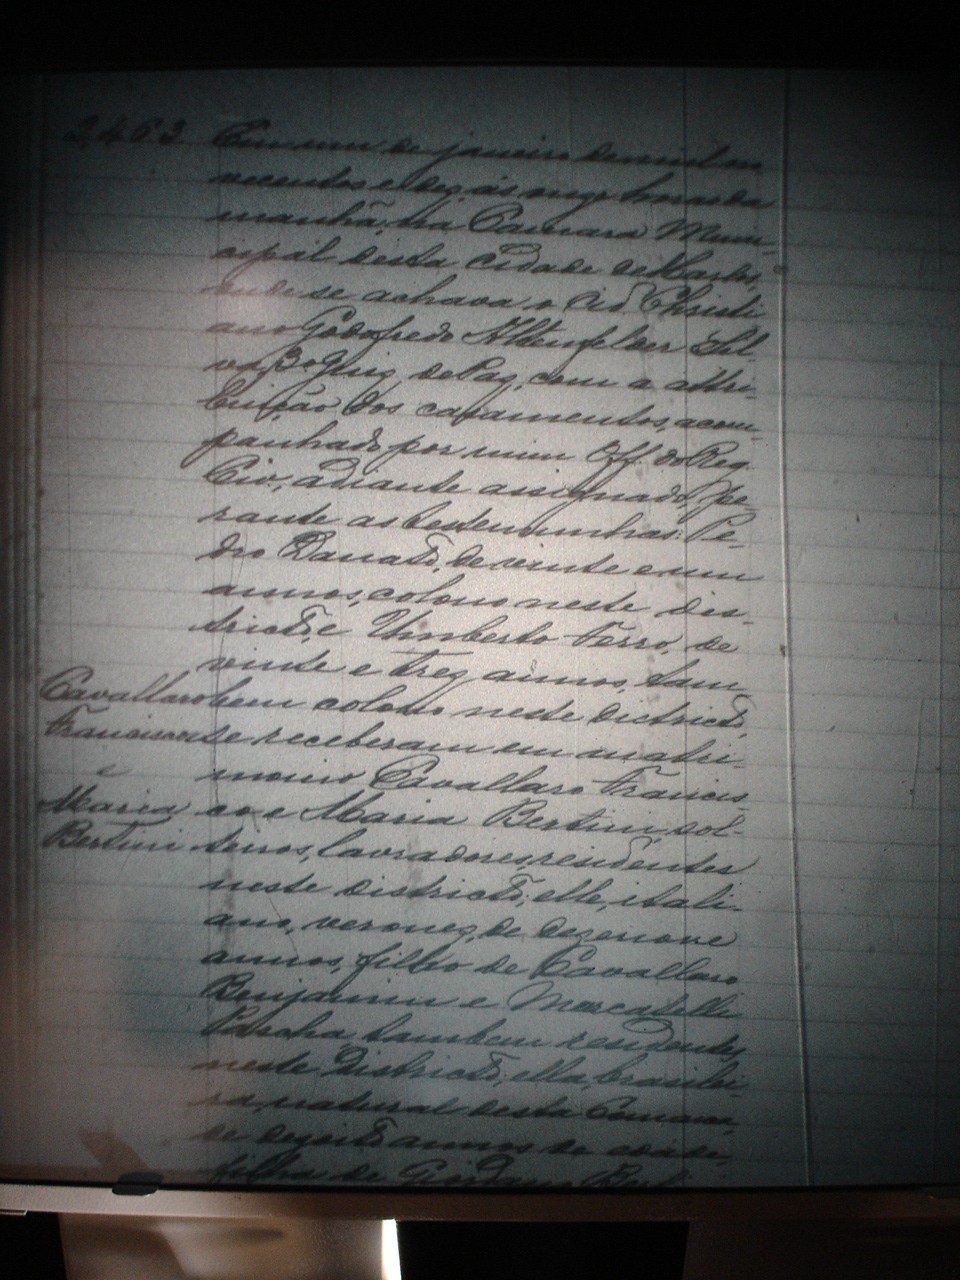 2463 Em um de janeiro de mil no
vecentos e dez, ás onze horas da
manhã, na Camara Muni-
cipal desta Cidade de S. Carlos,
onde se achava o Cid. Christi
ano Godofredo Altenfelder Sil
va, 3º Juiz de Paz, com a attri-
buição dos casamentos, acom-
panhado por mim Off. do Reg.
Civ., adiante assignado, pe-
rante as testemunhas: Pe-
dro Danato, de vinte e um
annos, colono neste dis-
tricto, e Umberto Ferro, de
vinte e trez annos, tam
bem colono neste districto,
se receberam em matri-
monio Cavallaro Francis-
co e Maria Bertini, sol-
teiros, lavradores, residentes
neste districto; elle, itali-
ano, veronez, de dezenove
annos, filho de Cavallaro
Benjamin e Marcatelli
Pascha tambem residentes
neste Districto, ella, brasilei-
ra, natural desta Comarca,
de dezoito annos de edade,
filha de Giordano Bert
Cavallaro
Francisco
e
Maria
Bertini